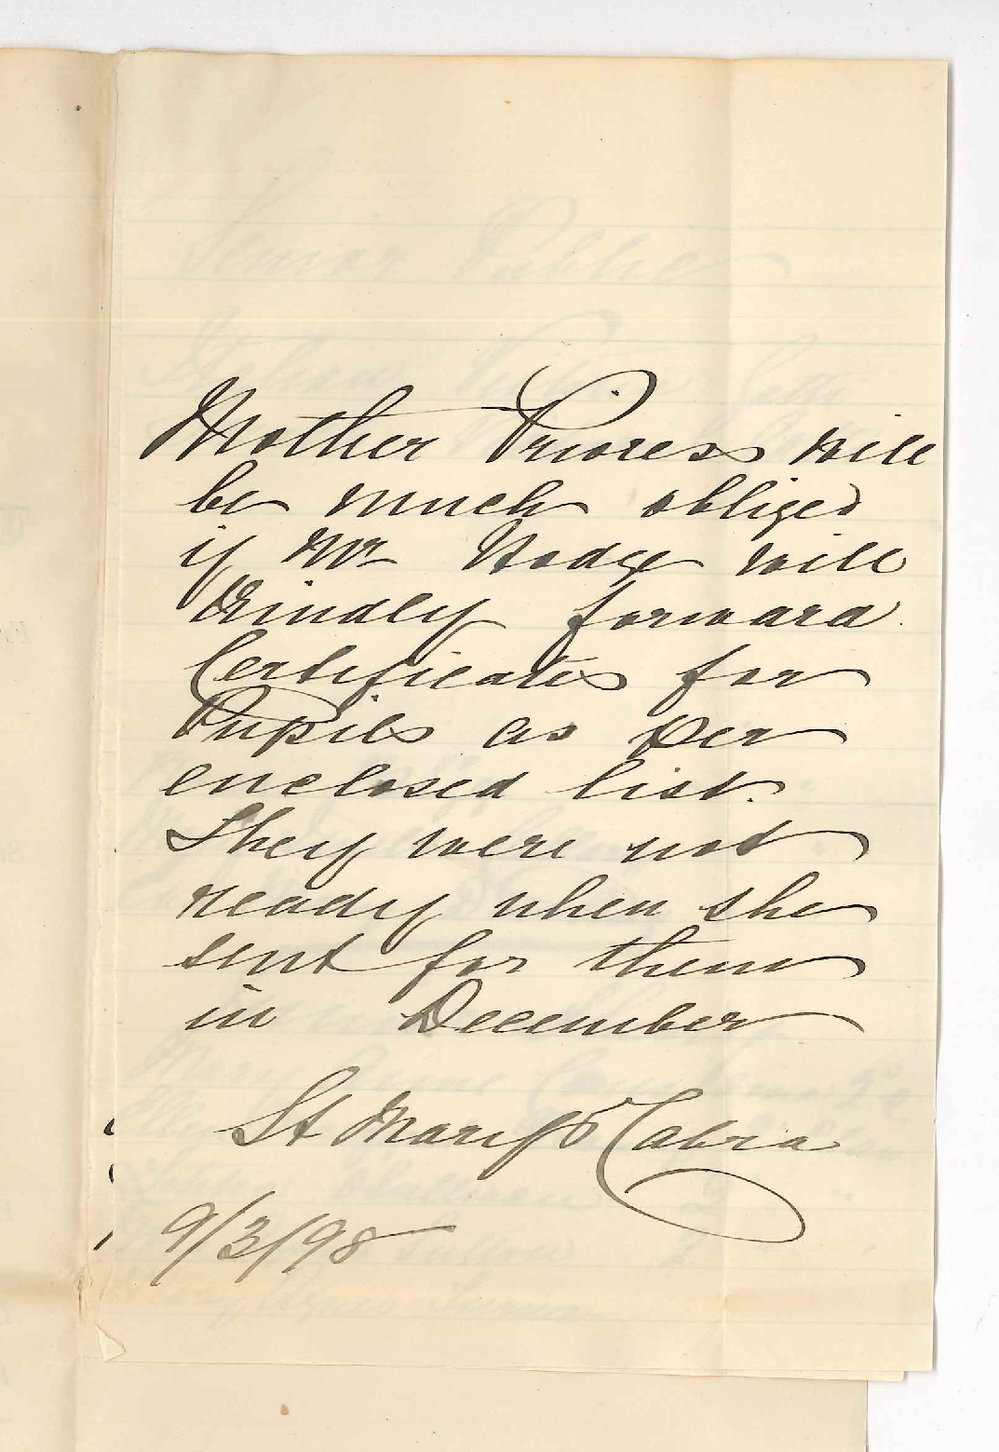 Mother Prioress will
be much obliged
if Mr Hodge will
Kindly forward
Certificates for
Pupils as per
enclosed list.
They were not
ready when she
sent for them
in December
St Mary's Cabra
9/3/98